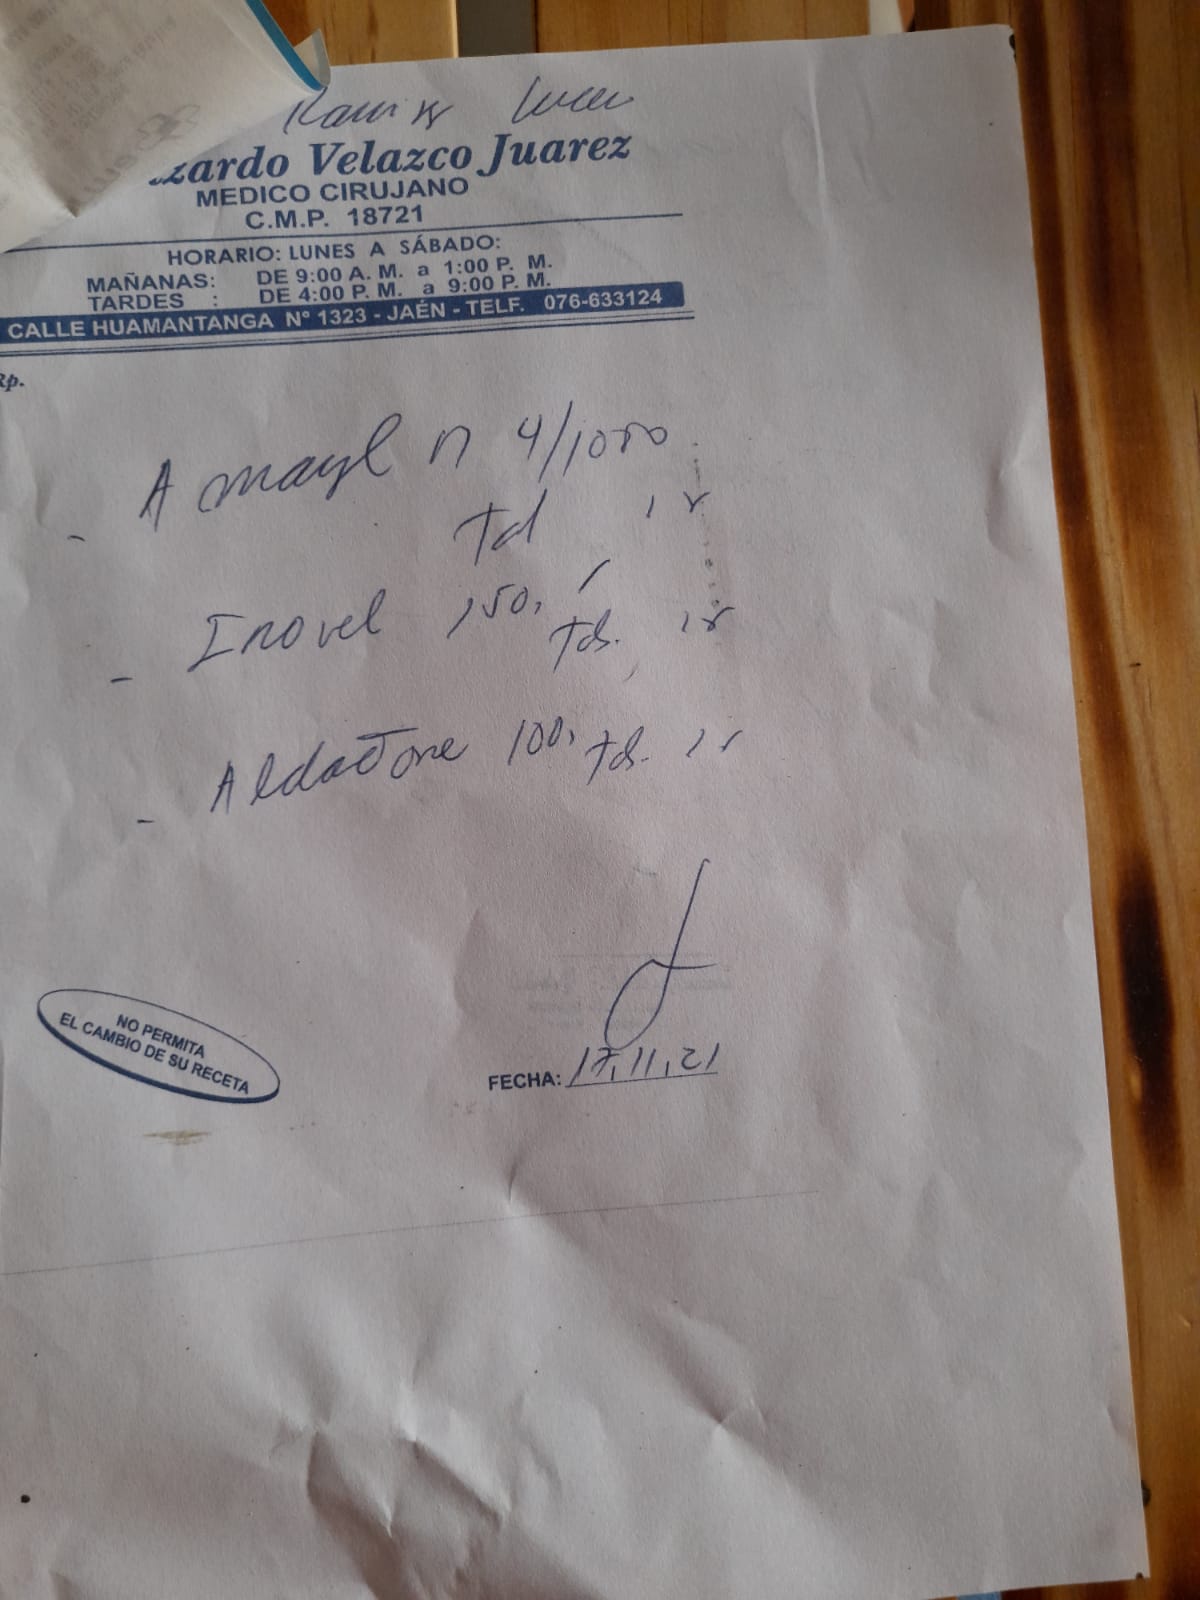 Lucer
zardo Velazco Juarez
MEDICO CIRUJANO
C.M.P. 18721
HORARIO: LUNES A SÁBADO:
MAÑANAS: DE 9:00 A. M. a 1:00 P. M.
TARDES : DE 4:00 P. M. a 9:00 P. M.
CALLE HUAMANTANGA Nº 1323 - JAÉN - TELF. 076-633124
Rp.
- Amaryl M 4/1000
- Inovel 150,
Tds.
- Aldactone 100, Tds.
NO PERMITA
EL CAMBIO DE SU RECETA
FECHA: 17,11,21